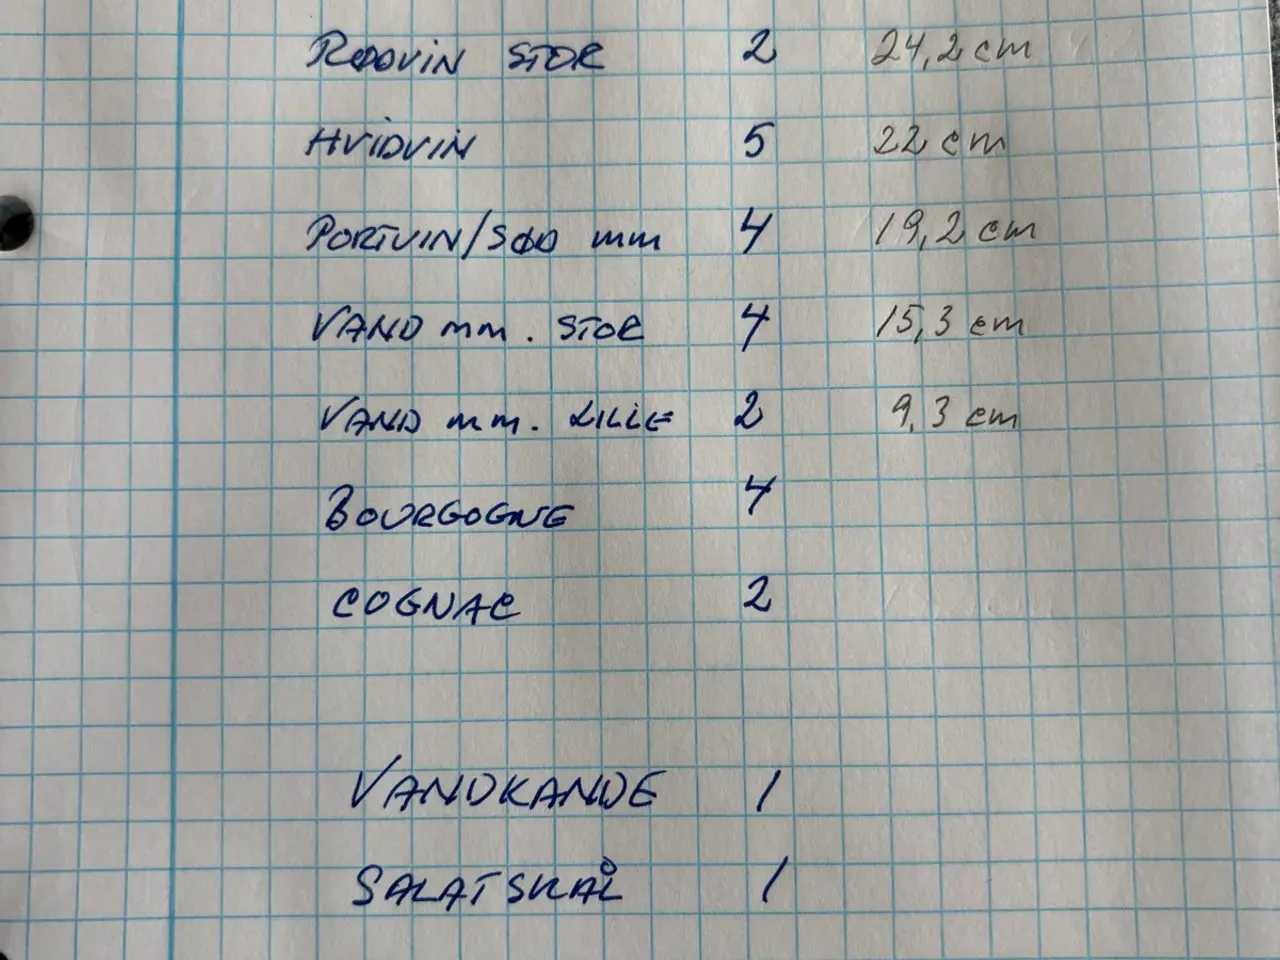 RØDVIN STOR 2 24,2 cm
HVIDVIN 5 22 cm
PORTVIN/SØD mm 4 19,2 cm
VAND mm. STOR 4 15,3 cm
VAND mm. LILLE 2 9,3 cm
BOURGOGNE 4
COGNAC 2
VANDKANDE 1
SALATSKÅL 1